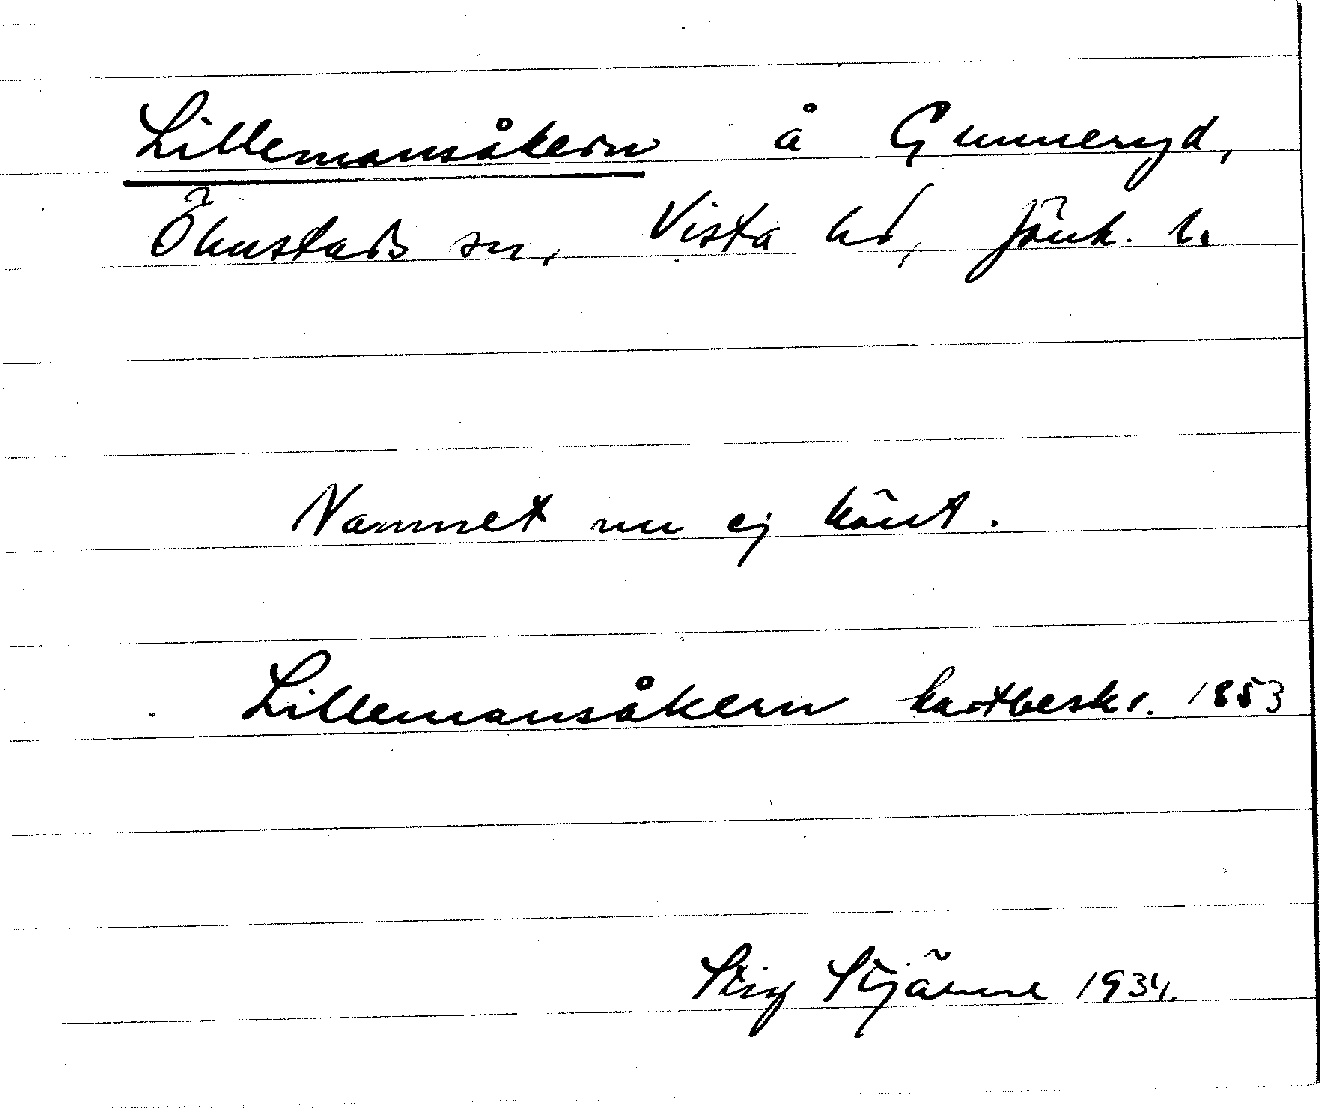 Lillemansåkern å Gunneryd,
Ölmstads sn, Vista hd, Jönk. l.
Namnet nu ej känt.
Lillemansåkern kartbeskr. 1853
Stig Stjärne 1934.